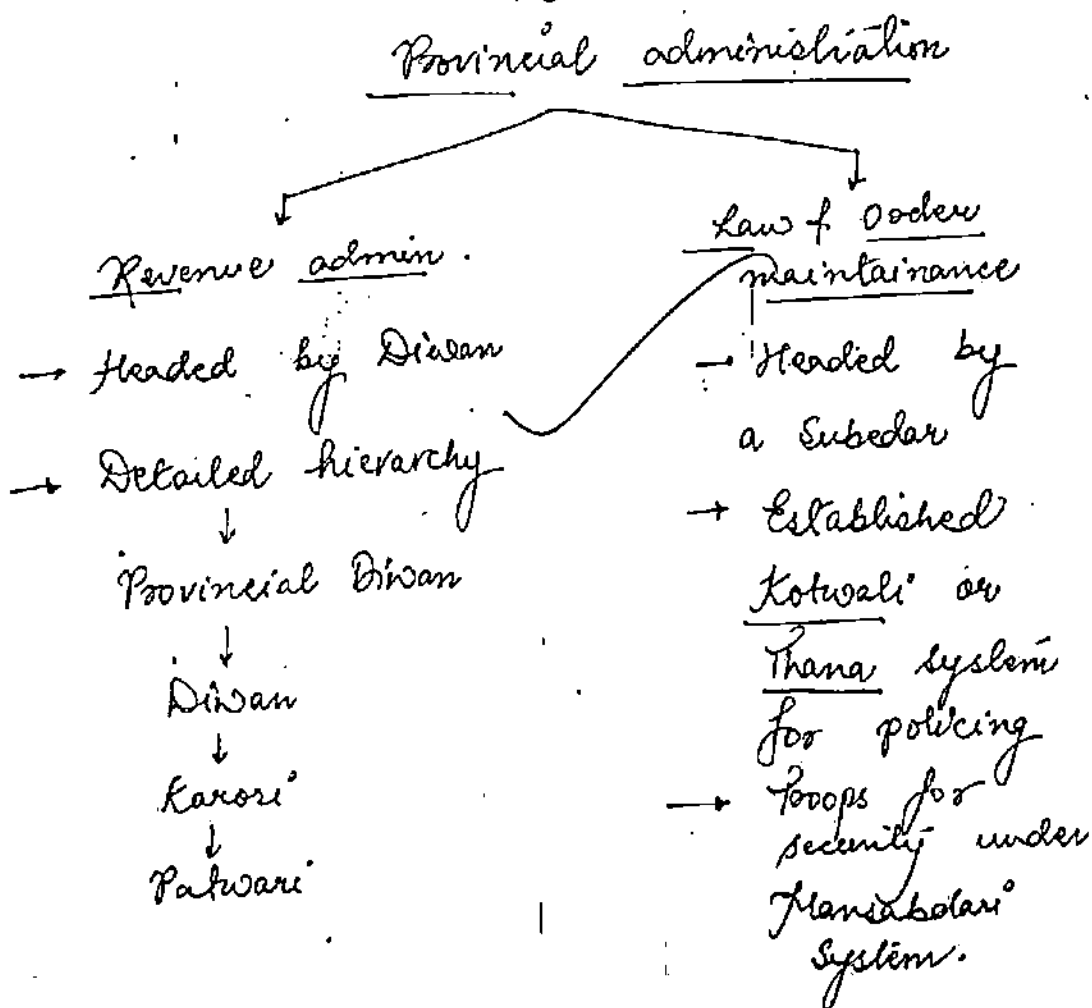 Provincial administration
Revenue admin.
→ Headed by Diwan
→ Detailed hierarchy
↓
Provincial Diwan
↓
Diwan
↓
Karori
↓
Patwari
Law & Order
maintainance
→ Headed by
a Subedar
→ Established
Kotwali or
Thana system
for policing
→ Troops for
security under
Mansabdari
System.